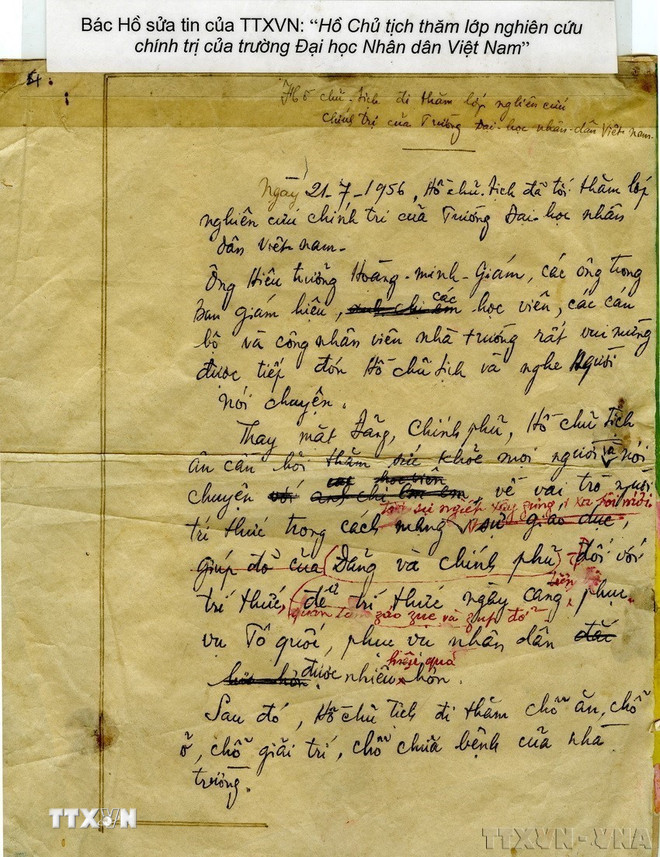 Bác Hồ sửa tin của TTXVN: “Hồ Chủ tịch thăm lớp nghiên cứu
chính trị của trường Đại học Nhân dân Việt Nam”
Hồ chủ-tịch đi thăm lớp nghiên cứu
chính trị của Trường Đại-học nhân-dân Việt-nam.
Ngày 21-7-1956, Hồ chủ-tịch đã tới thăm lớp
nghiên cứu chính trị của Trường Đại-học nhân
dân Việt-nam.
Ông Hiệu trưởng Hoàng-minh-Giám, các ông trong
Ban giám hiệu, anh chị em các học viên, các cán
bộ và công nhân viên nhà trường rất vui mừng
được tiếp đón Hồ chủ tịch và nghe Người
nói chuyện.
Thay mặt Đảng, Chính phủ, Hồ chủ tịch
ân cần hỏi thăm sức khỏe mọi người và nói
các học viên
chuyện với anh chị em về vai trò người
sự nghiệp xây dựng xã hội mới
trí thức trong cách mạng, sự giáo dục,
giúp đỡ của Đảng và chính phủ đối với
tiến
trí thức, để trí thức ngày càng phục
quan tâm záo zục và zúp đỡ
vụ Tổ quốc, phục vụ nhân dân
hiệu quả
được nhiều hơn.
Sau đó, Hồ chủ tịch đi thăm chỗ ăn, chỗ
ở, chỗ giải trí, chỗ chữa bệnh của nhà
trường.
TTXVN
TTXVN-VNA